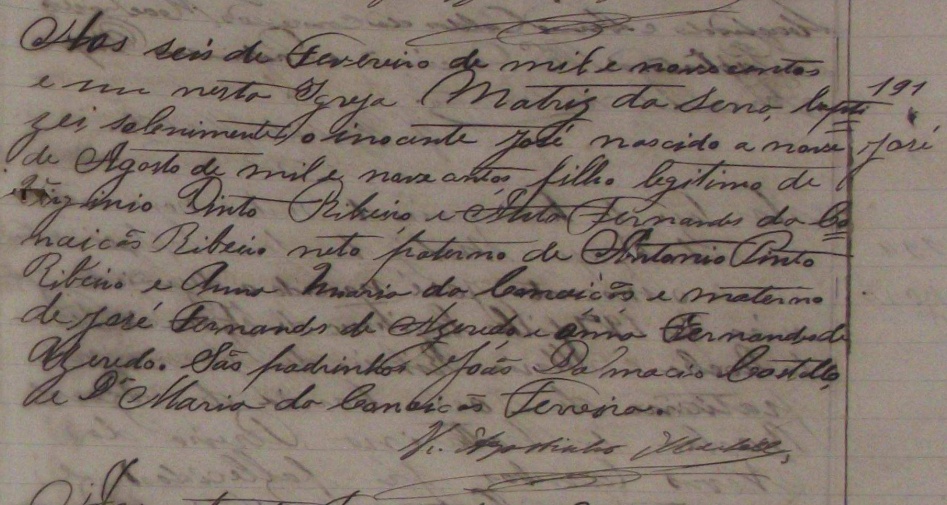 Aos seis de Fevereiro de mil e novecentos
e um nesta Igreja Matriz da Serra, bapti
191
zei solenimente o inocente José nascido a nove
José
de Agosto de mil e novecentos filho legitimo de
Virginio Pinto Ribeiro e Fernandes da Co
nceicão Ribeiro neto paterno de Antonio Pinto
Ribeiro e Anna Maria da Conceicão e materno
de José Fernandes de Azeredo e Anna Fernandes de
Azeredo. São padrinhos João Damacio Castello
e D. Maria da Conceicão Ferreira.
V. Agostinho